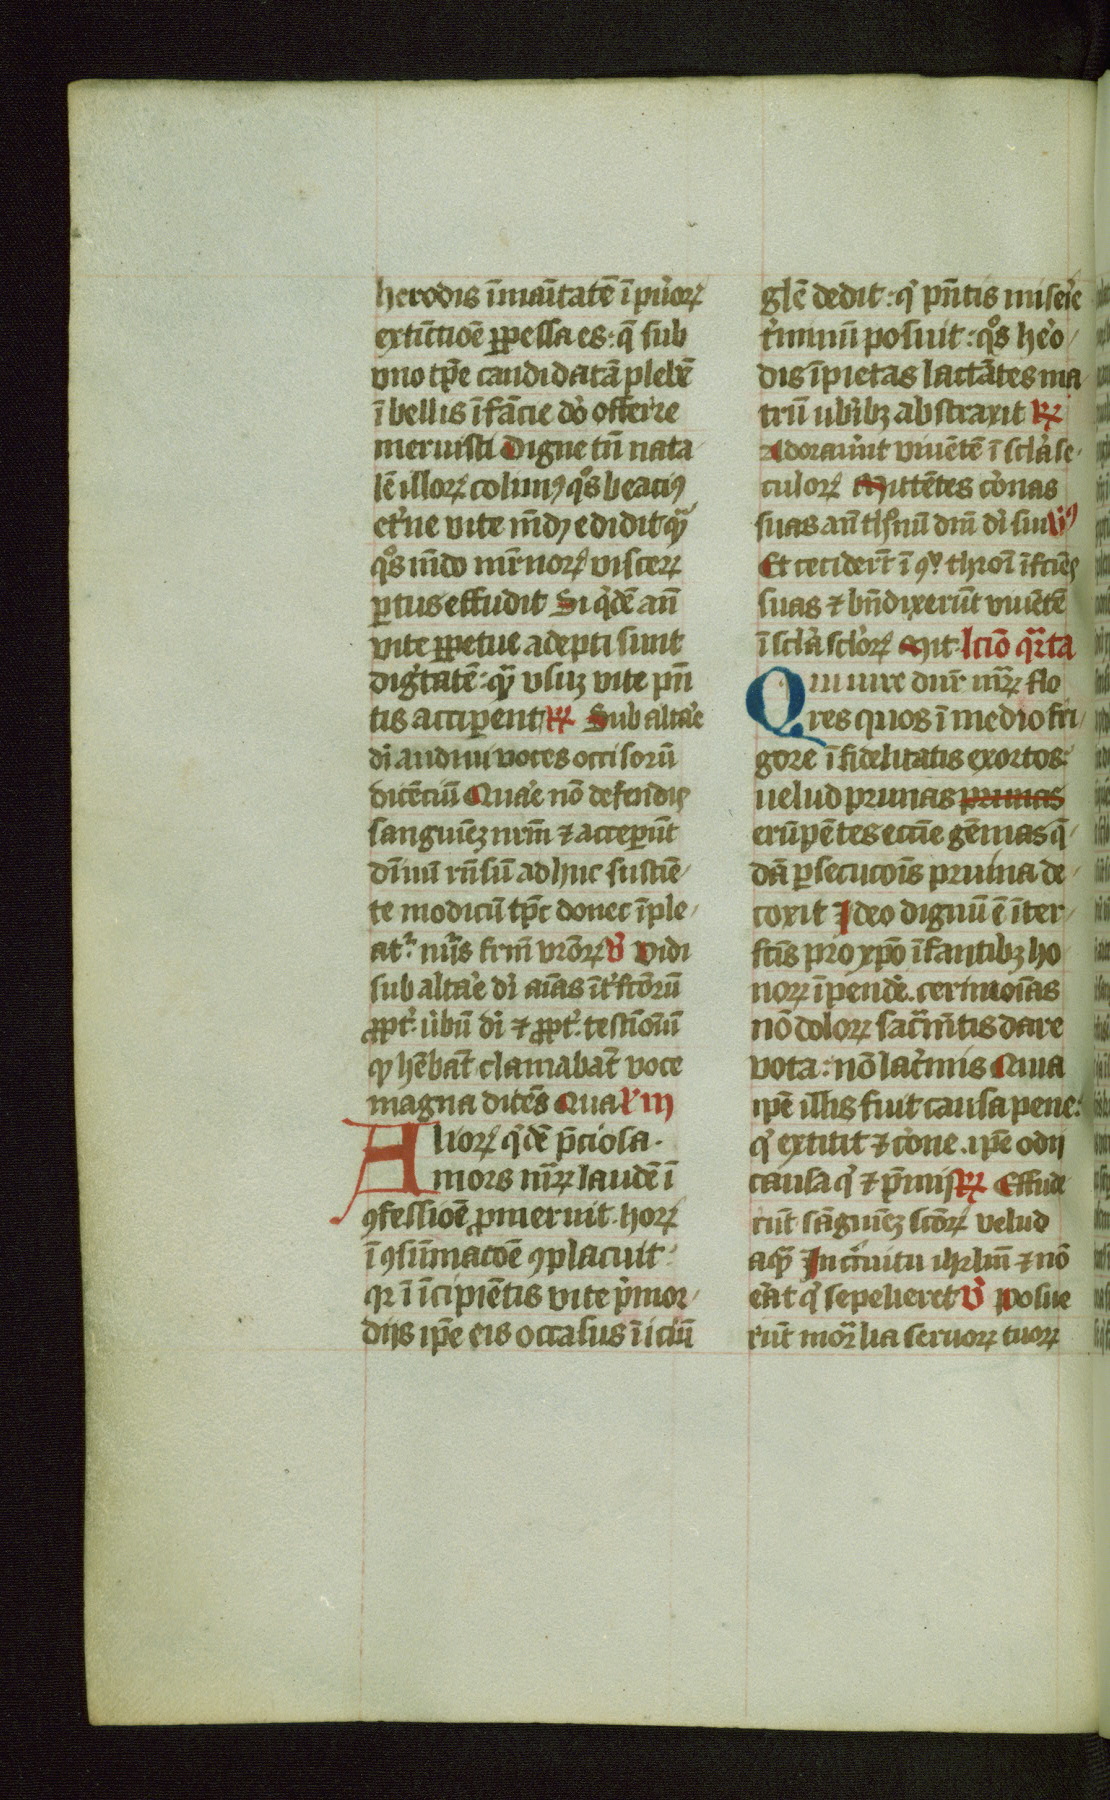 herodis īmaītatē ī pu̾oꝝ
extīctiōe ꝑpessa es: q̄ sub
vno tp̄e candidatā plebē
ī bellis īfācie do̾ offerre
meruisti Digne tn̄ nata
lē illoꝝ colimꝰ qͦs beaciꝰ
et̾ne vite mūdꝫ edidit qᷓ
qͦs mūdo mr̄noꝝ visceꝝ
ꝑtus effudit Si qͥdē an̄
vite ꝑpetue adepti sunt
dig̾tatē: qᷓ vsuꝫ vite pn̄
tis acciperent ℟ Sub alta̾e
di̾ audiui voces occisorū
dicēciū Qua̾e nō defendis
sanguīeꝫ nr̄m ⁊ acceperūt
dīuū rn̄sū adhuc sustīe
te modicū tp̄c donec īple
at̾ nūs frm̄ vr̄oꝝ ℣ Vidi
sub alta̾e di̾ aīas īt̾fc̄orū
ꝓpt̾ u̾bū di̾ ⁊ ꝓpt̾ testīoniū
qͩ hēbāt clamabāt voce
magna dicēs Qua ℟ iii
Alioꝝ qͥdē p̄ciosa
mors mr̄ꝝ laudē ī
ꝯfessiōe ꝓmeruit. hoꝝ
ī ꝯsūmacōe ꝯplacuit
qꝛ ī īcipiētis vite pͥmor
dijs ip̄e eis occasus īiciū
glē dedit: qͥ pn̄tis mise̾ie
t̾minū posuit: qͦs he̾o
dis īpietas lactātes ma
trū ub̾ibꝫ abstraxit ℟
Adorau̾nt viuētē ī scl̾a se
culoꝝ Mittētes co̾nas
suas an̄ thͦnū dn̄i di̾ sui ℣ꝰ
Et cecider̄t ī ꝯsͨ. throī īfciēs
suas ⁊ bn̄dixerūt viuētē
ī scl̾a scl̾oꝝ Mit. lcīo qᷓrta
Qui iure dnr̄ mr̄ꝝ flo
res quos ī medio fri
gore īfidelitatis exortos:
uelud prunas prunas
erūpētes eccīe gēmas q̄
dā ꝑsecucoīs pruina de
coxit Ideo dignū ē īter
fcīs pro xp̄o īfantibꝫ ho
noꝝ īpende̾. cerimoīas
nō doloꝝ sacᷓmētis dare
vota: nō lac̾mis Quia
ip̄e illis fuit causa pene:
qͥ extitit ⁊ co̾ne. ip̄e odij
causa qͥ ⁊ p̄mij ℟ Effude
rūt sāguīeꝫ sc̄oꝝ velud
aqᷓ In cͥcuitu ihrlm̄ ⁊ nō
e̾at qͥ sepelieret ℣ Posue
rūt morᷓlia seruoꝝ tuoꝝ